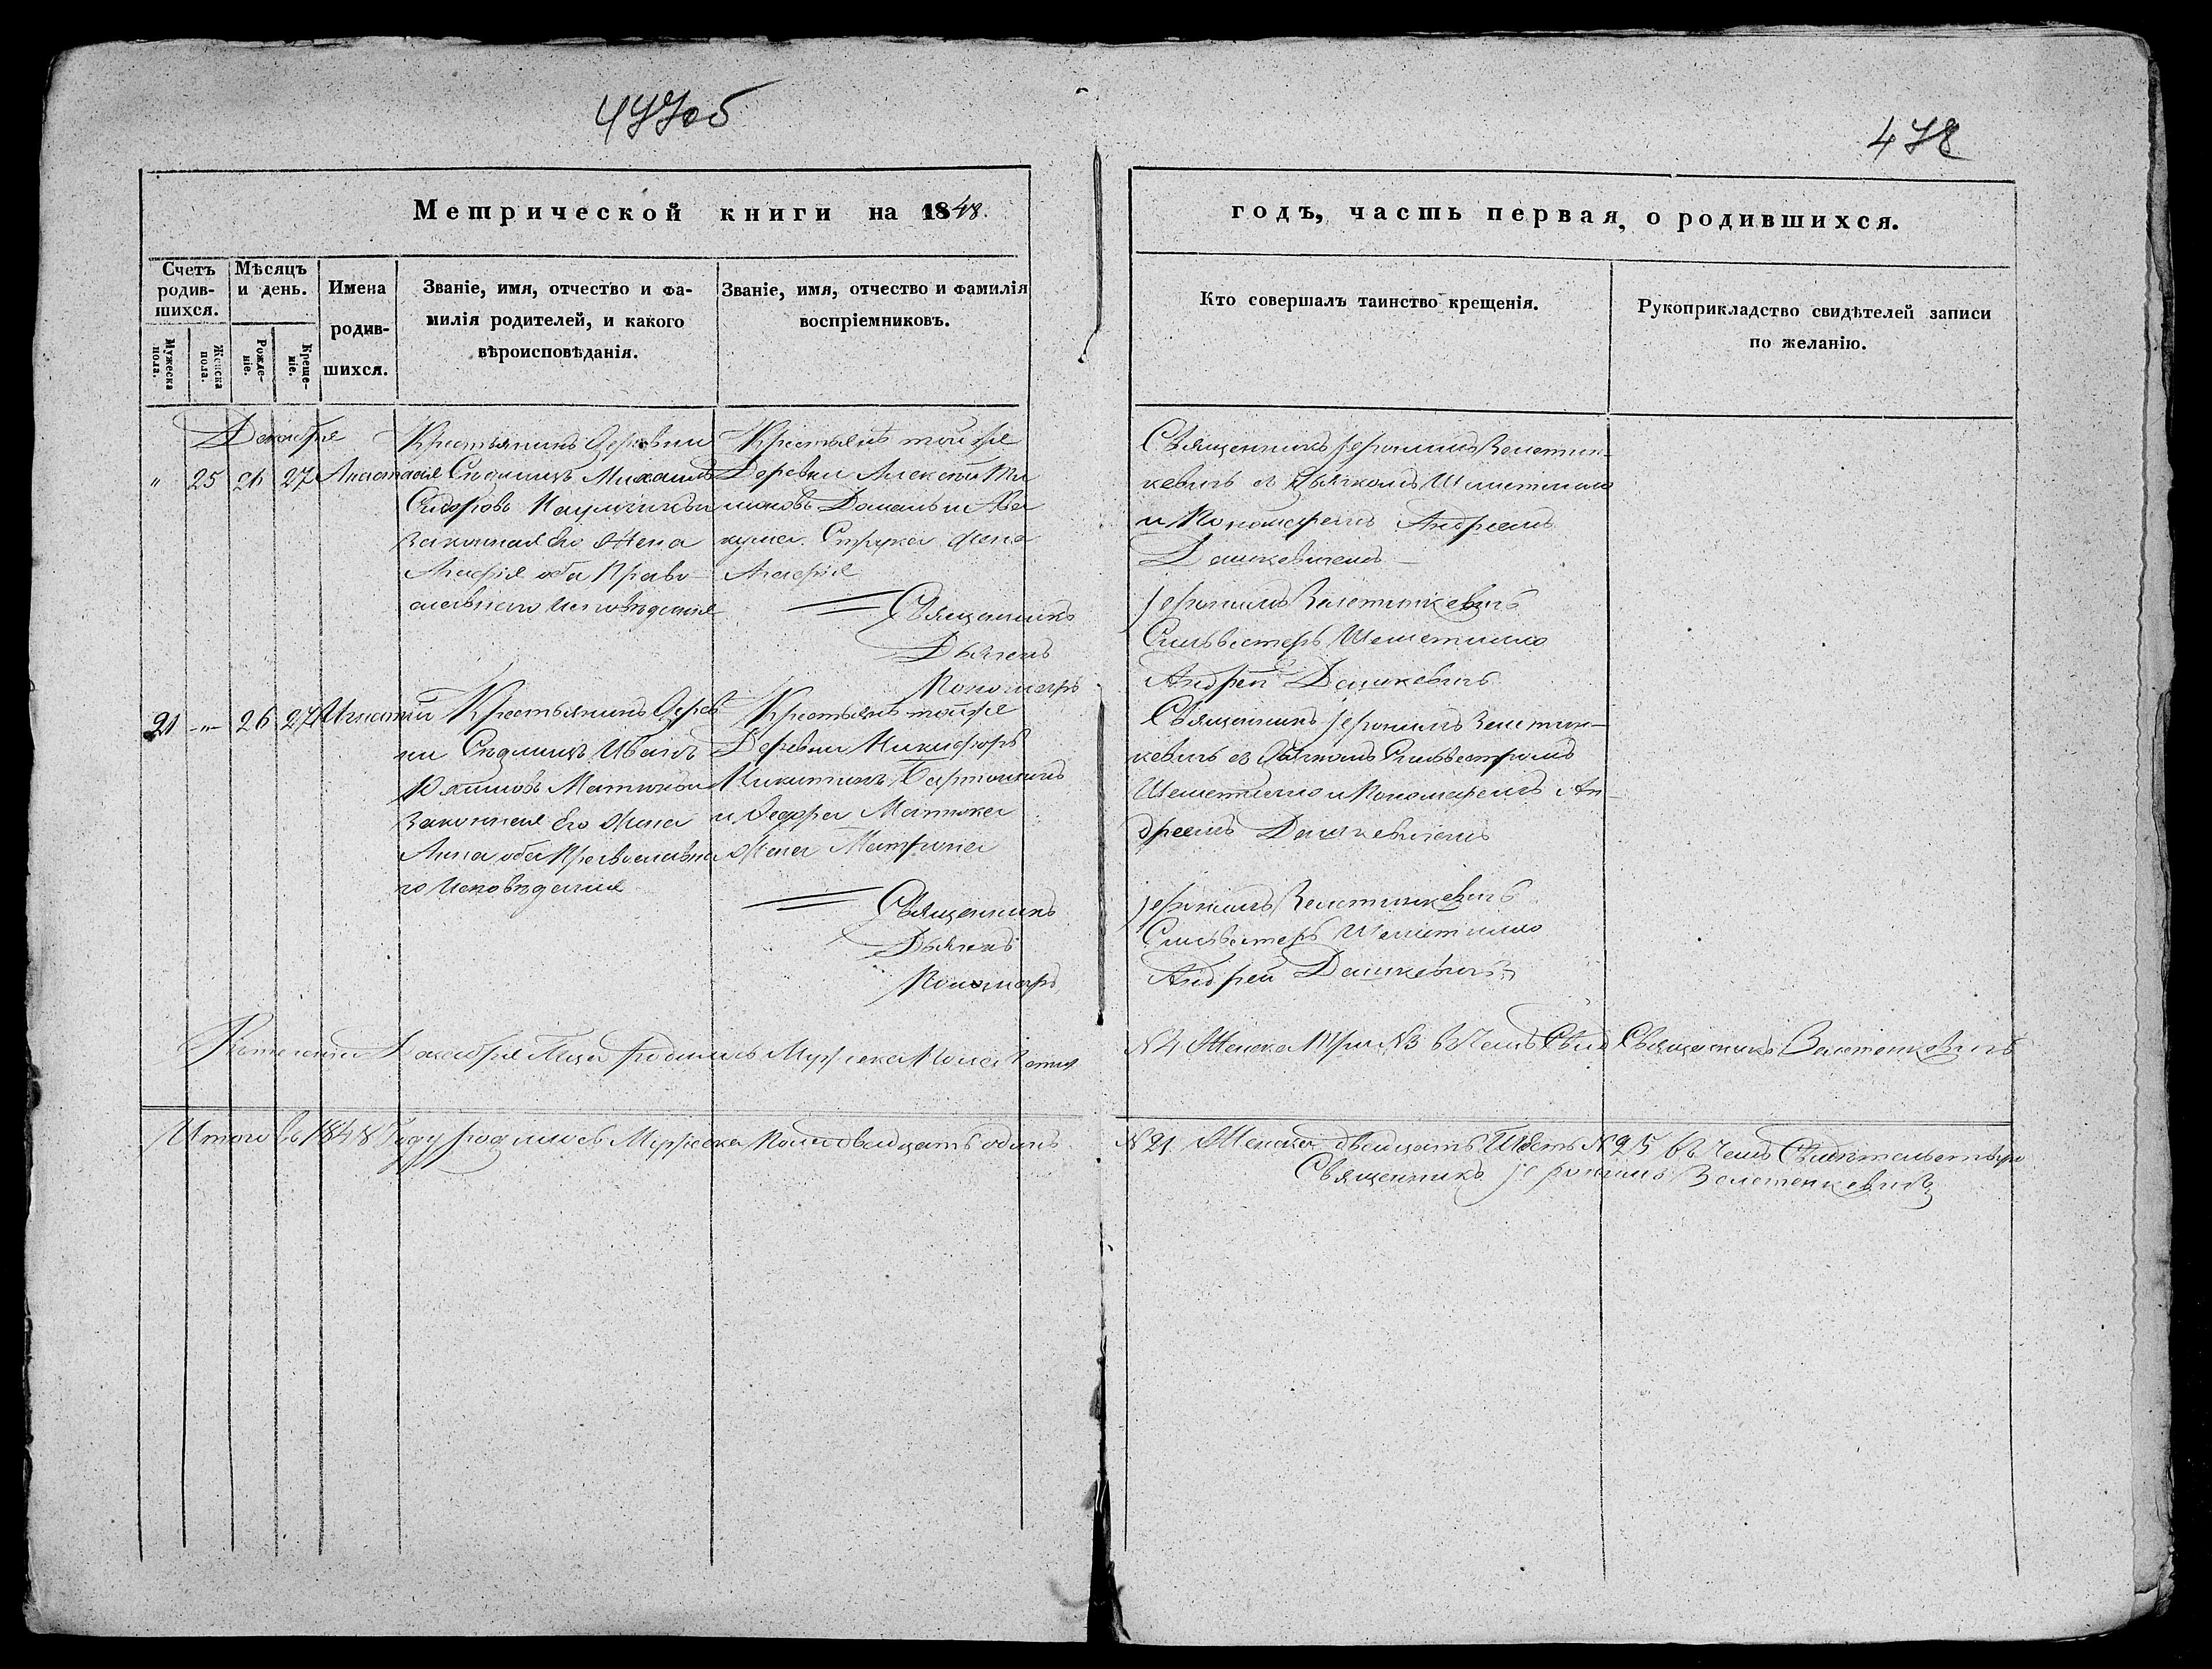 477об
478
Метрической книги на 1848.
годъ, часть первая, о родившихся.
Счетъ родив-шихся.
Мужеска пола.
Женска пола.
Мѣсяцъ и день.
Рожде-ніе.
Креще-ніе.
Имена родив-шихся.
Званіе, имя, отчество и фа-
милія родителей, и какого
вѣроисповѣданія.
Званіе, имя, отчество и фамилія
воспріемниковъ.
Кто совершалъ таинство крещенія.
Рукоприкладство свидѣтелей записи
по желанію.
Декабря
" 25 26 27 Анастасія
Крестьянинъ Деревни
Сѣдлищъ Михаилъ
Сидоровъ
законная Его Жена
Агафія оба Право-
славнаго Исповѣданія
Крестьянъ той же
Деревни Алексѣй
Жена
Агафія
Священникъ
Дьячекъ
Пономарь
Священникъ Іеронимъ
кевичъ съ Дьячкомъ Шеметилло
и Пономаремъ Андреемъ
Дашкевичемъ
Іеронимъ
Сильвестеръ Шеметилло
Андрей Дашкевичъ
21 -"- 26 27 Игнатій
Крестьянинъ Дерев-
ни Сѣдлищъ Иванъ
законная Его Жена
Анна оба Православна
го Исповѣданія
Крестьянъ той же
Деревни Никифоръ
Никитинъ
и Федора
Жена Матрона
Священникъ
Дьячекъ
Пономарь
Священникъ Іеронимъ
кевичъ съ Дьячкомъ Сильвестромъ
Шеметилло и Пономаремъ Ан-
дреемъ Дашкевичемъ
Іеронимъ
Сильвестеръ Шеметилло
Андрей Дашкевичъ
Декабря Мца родилось Мужеска Пола
№ 4 Женска Три № 3 въ Чемъ Свид Священникъ
Итого въ 1848 Году родилось Мужеска Пола двадцать одинъ
№ 21 Женска двадцать Пять № 25 въ Чемъ Свидѣтельствую
Священникъ Іеронимъ